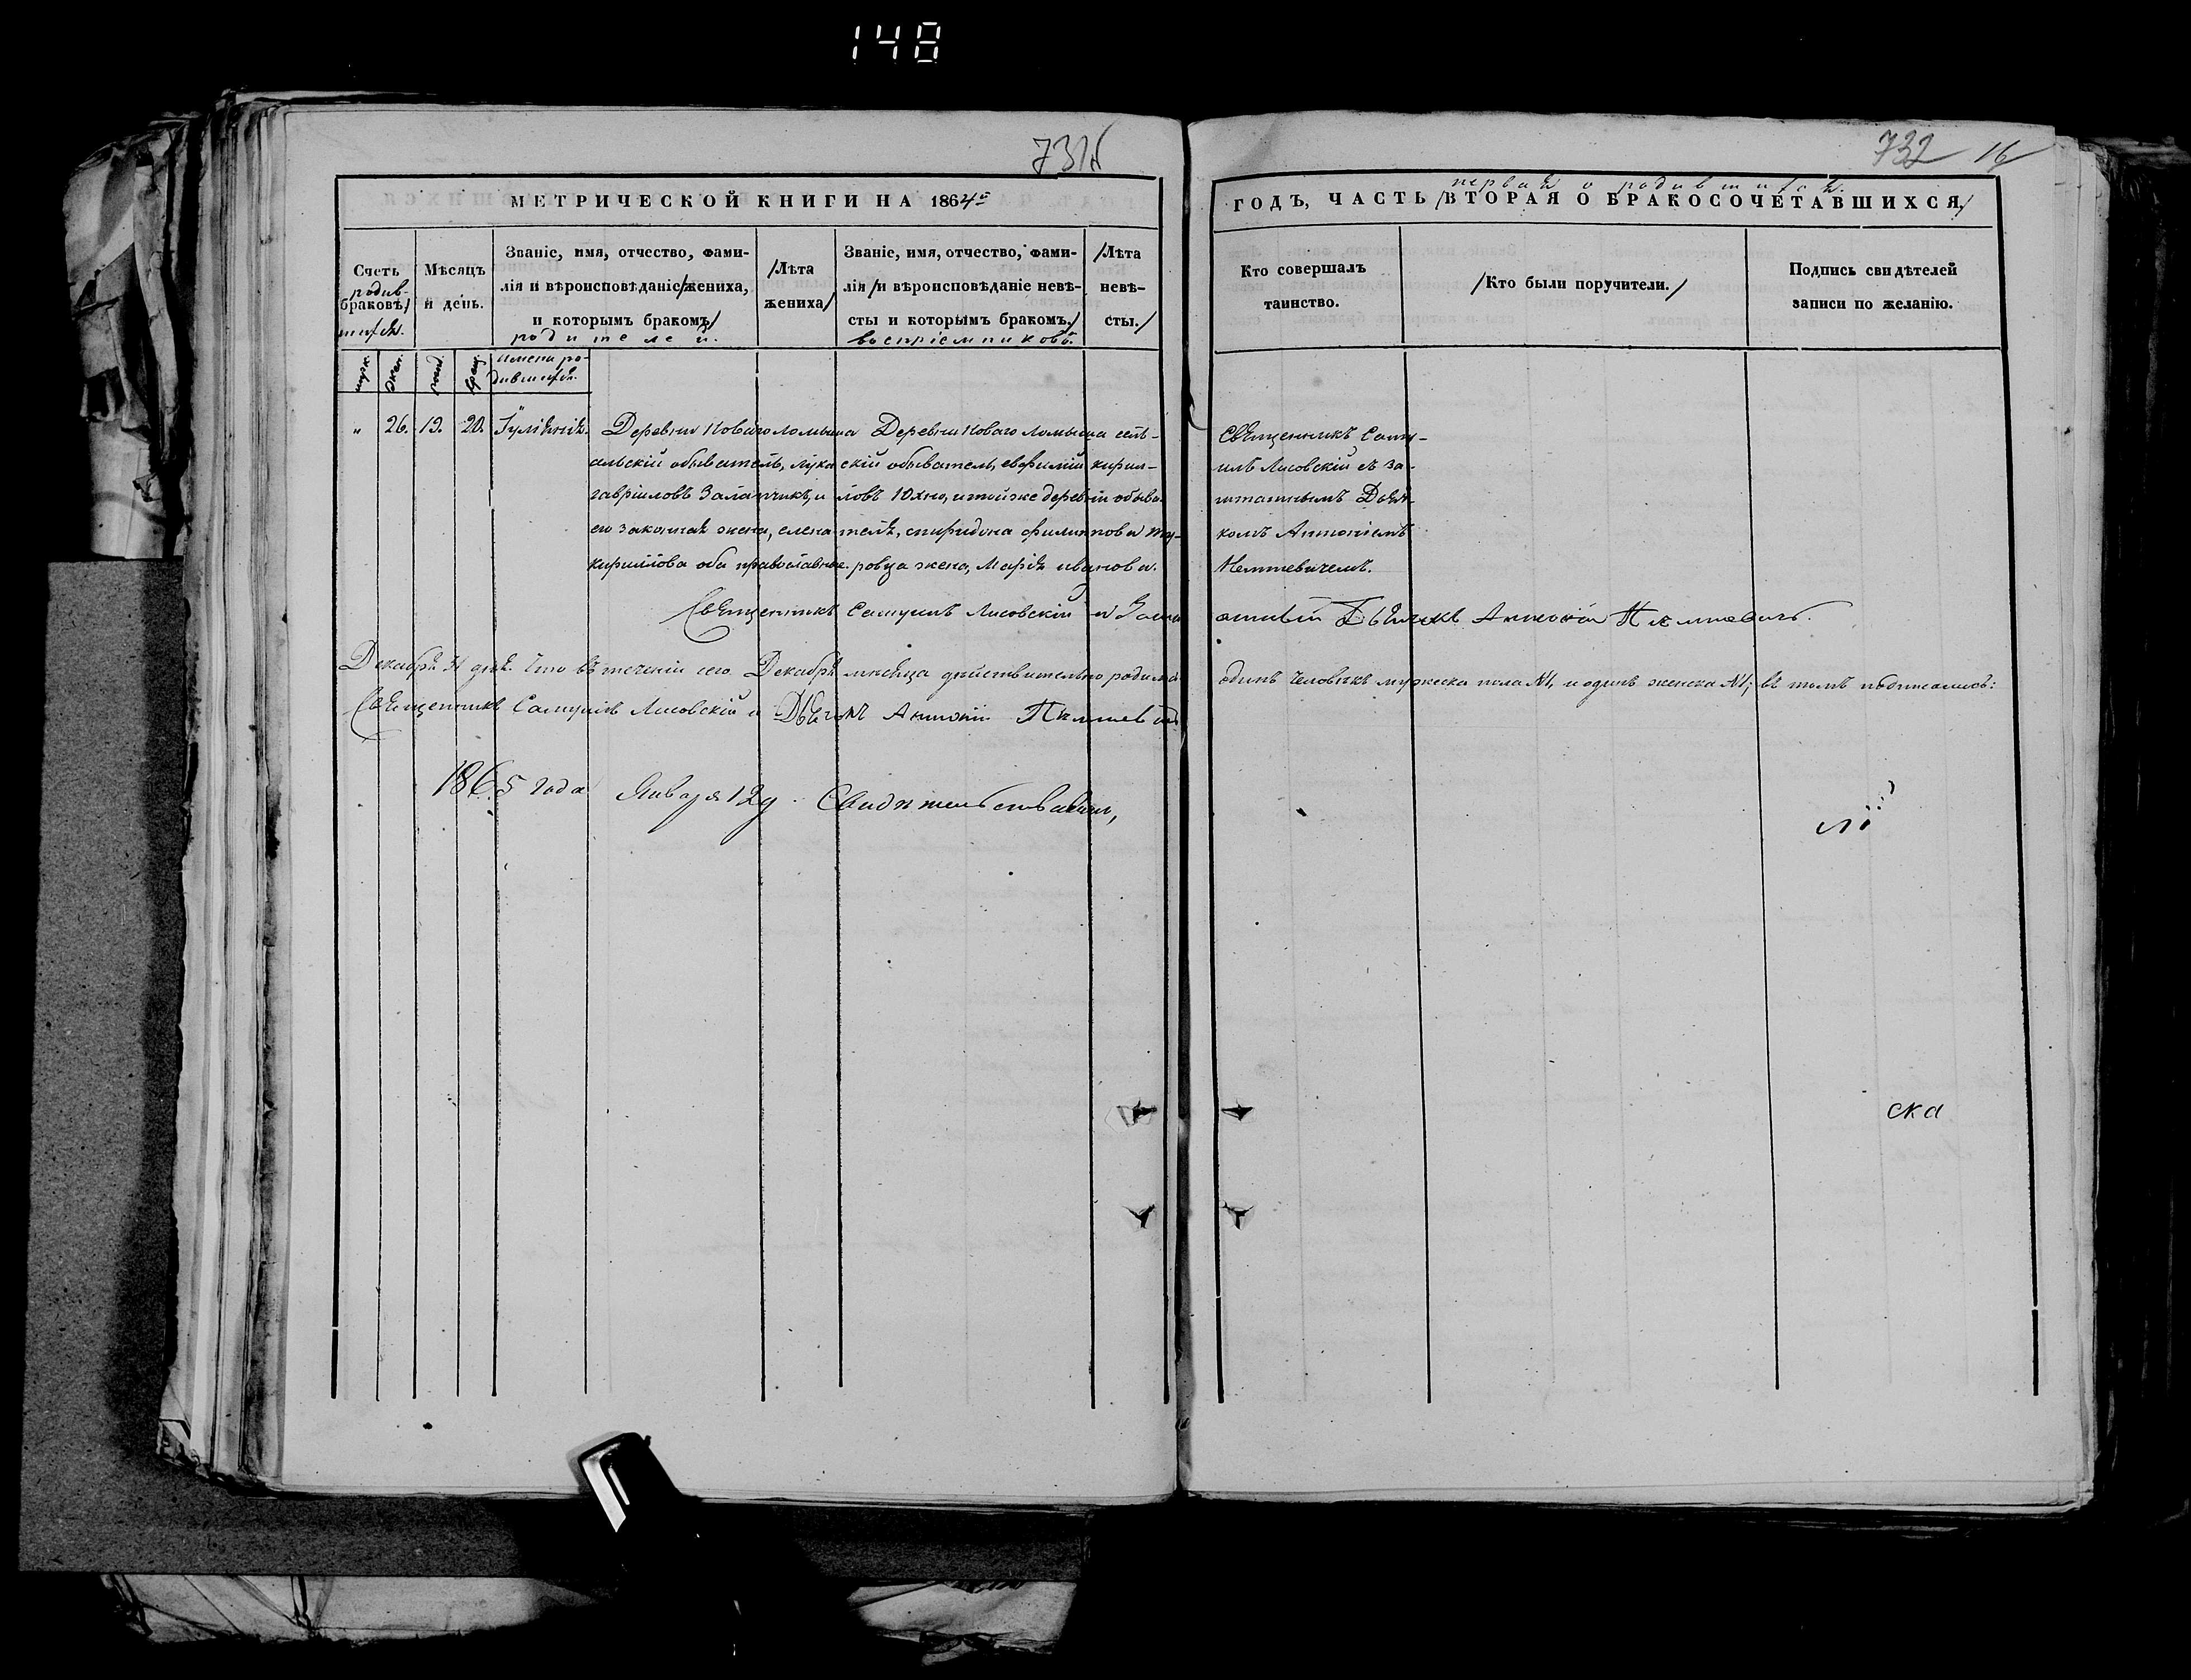 148
731
732 16
МЕТРИЧЕСКОЙ КНИГИ НА 1864й
первая о родившихся.
ГОДЪ, ЧАСТЬ /ВТОРАЯ О БРАКОСОЧЕТАВШИХСЯ/
Счетъ
родив-
браковъ/
шихся.
Мѣсяцъ
и день.
Званіе, имя, отчество, фами-
лія и вѣроисповѣданіе /жениха,
и которымъ бракомъ/
родителей.
/Лѣта
жениха/
Званіе, имя, отчество, фами-
лія /и вѣроисповѣданіе невѣ-
сты и которымъ бракомъ./
воспріемниковъ.
/Лѣта
невѣ-
сты./
Кто совершалъ
таинство.
/Кто были поручители./
Подпись свидѣтелей
записи по желанію.
муж.
жен.
рожд.
крещ.
имена ро-
дившихся.
" 26. 19. 20. Іуліанія.
Деревни Новаго
альскій обыватель, Лука
Гавріиловъ и
его законная жена, Елена
Кириллова оба православные.
Деревни Новаго сель-
скій обыватель, Евфимій Кирил-
ловъ Юхно, и тойже деревни обыва-
теля, Спиридона Филиппова
жена, Марія Иванова.
Священникъ Саму-
илъ Лисовскій съ за-
штатнымъ Дьяч-
комъ Антоніемъ
Священникъ Самуилъ Лисовскій и Зашта
атный Дьячекъ Антоній
Декабря 31 дня. Что въ теченіи сего Декабря мѣсяца дѣйствительно родилось
одинъ человѣкъ мужеска пола №1, и одинъ женска №1; въ томъ подписались:
Священникъ Самуилъ Лисовскій и Дьячекъ Антоній
1865 года Января 12 д. Свидѣтельствовалъ,
ска